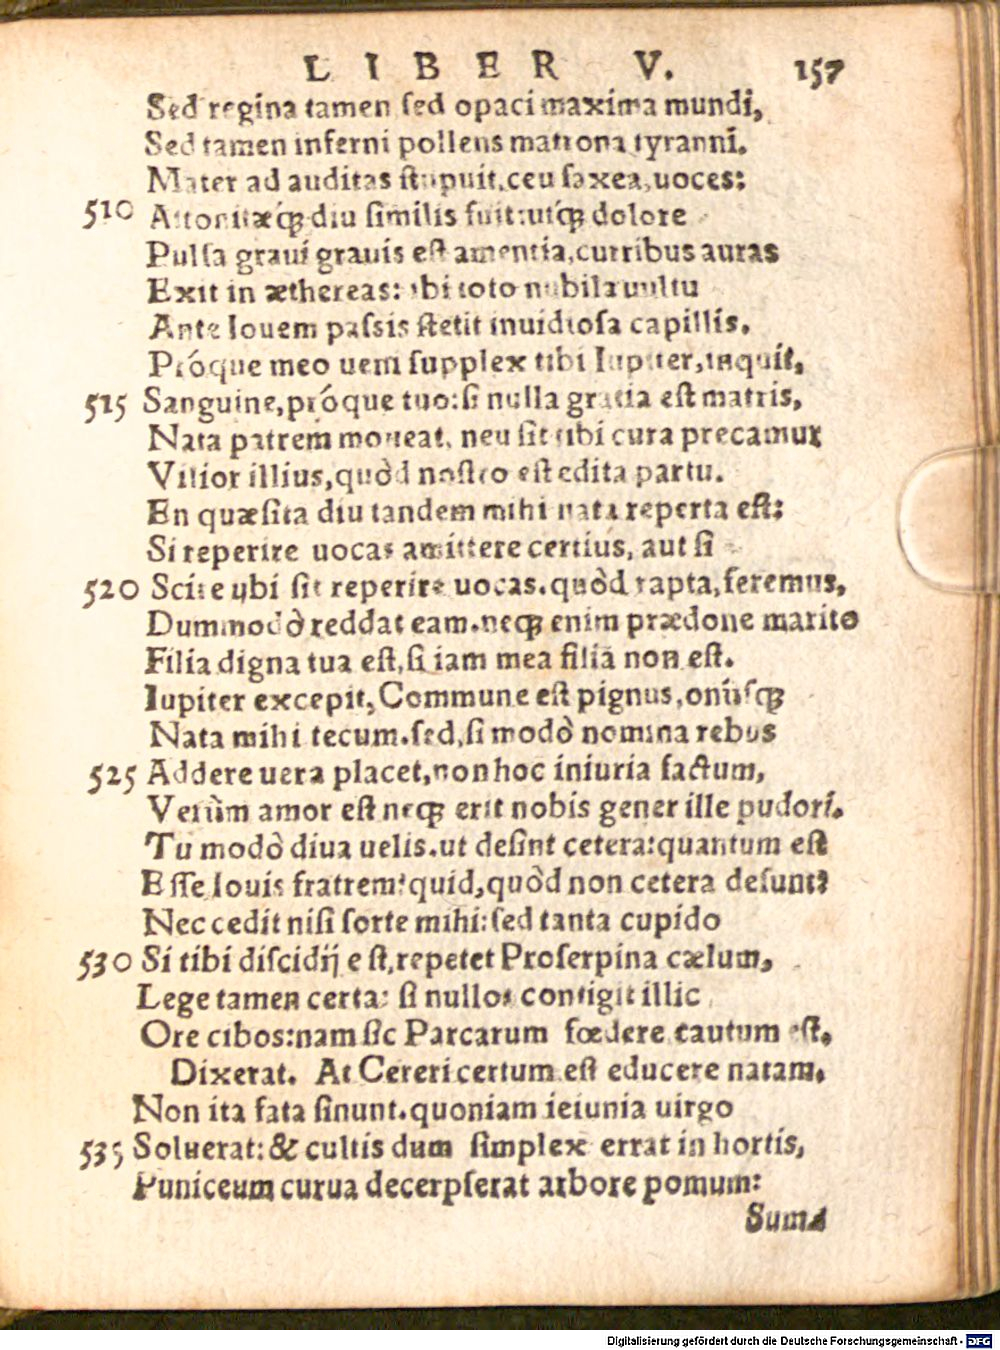 LIBER V. 157
Sed regina tamen sed opaci maxima mundi,
Sed tamen inferni pollens matrona tyranni.
Mater ad auditas stupuit, ceu saxea, uoces:
510 Attonitæq́ diu similis fuit: utq́ dolore
Pulsa graui grauis est amentia, curribus auras
Exit in æthereas: ibi toto nubila uultu
Ante Iouem passis stetit inuidiosa capillis.
Próque meo ueni supplex tibi Iupiter, inquit,
515 Sanguine, próque tuo: si nulla gratia est matris,
Nata patrem moueat, neu sit tibi cura precamur
Vilior illius, quòd nostro est edita partu.
En quæsita diu tandem mihi nata reperta est:
Si reperire uocas amittere certius, aut si
520 Scire ubi sit reperire uocas. quòd rapta, feremus,
Dummodò reddat eam. neq; enim prædone marito
Filia digna tua est, si iam mea filia non est.
Iupiter excepit, Commune est pignus, onúsq;
Nata mihi tecum. sed, si modò nomina rebus
525 Addere uera placet, non hoc iniuria factum,
Verùm amor est neq; erit nobis gener ille pudori.
Tu modò diua uelis. ut desint cetera: quantum est
Esse Iouis fratrem? quid, quòd non cetera desunt?
Nec cedit nisi sorte mihi: sed tanta cupido
530 Si tibi discidij est, repetet Proserpina cælum,
Lege tamen certa: si nullos contigit illic
Ore cibos: nam sic Parcarum fœdere cautum est.
Dixerat. At Cereri certum est educere natam.
Non ita fata sinunt. quoniam ieiunia uirgo
535 Soluerat: & cultis dum simplex errat in hortis,
Puniceum curua decerpserat arbore pomum:
Suma
Digitalisierung gefördert durch die Deutsche Forschungsgemeinschaft - DFG